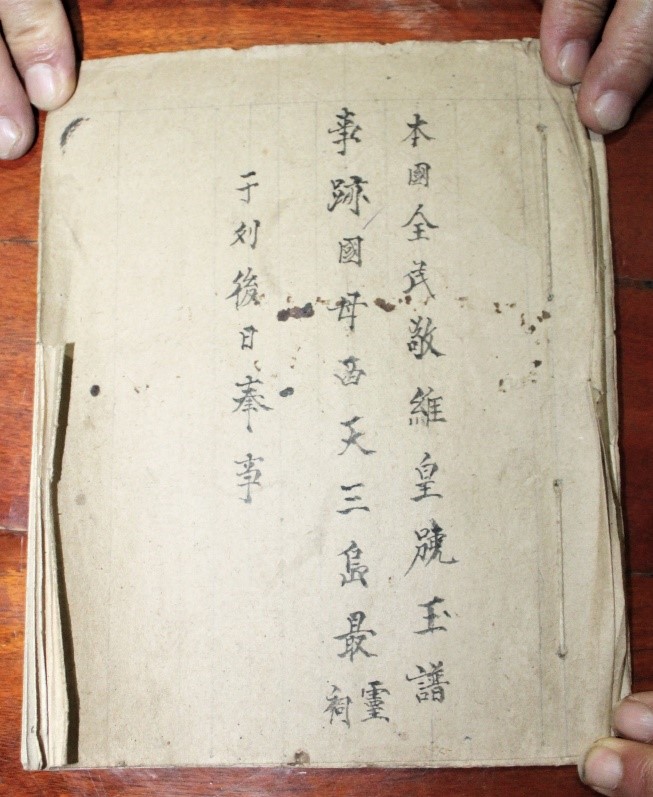 本國全民敬維皇號玉譜
事跡國母西天三島最靈祠
于列後日奉事